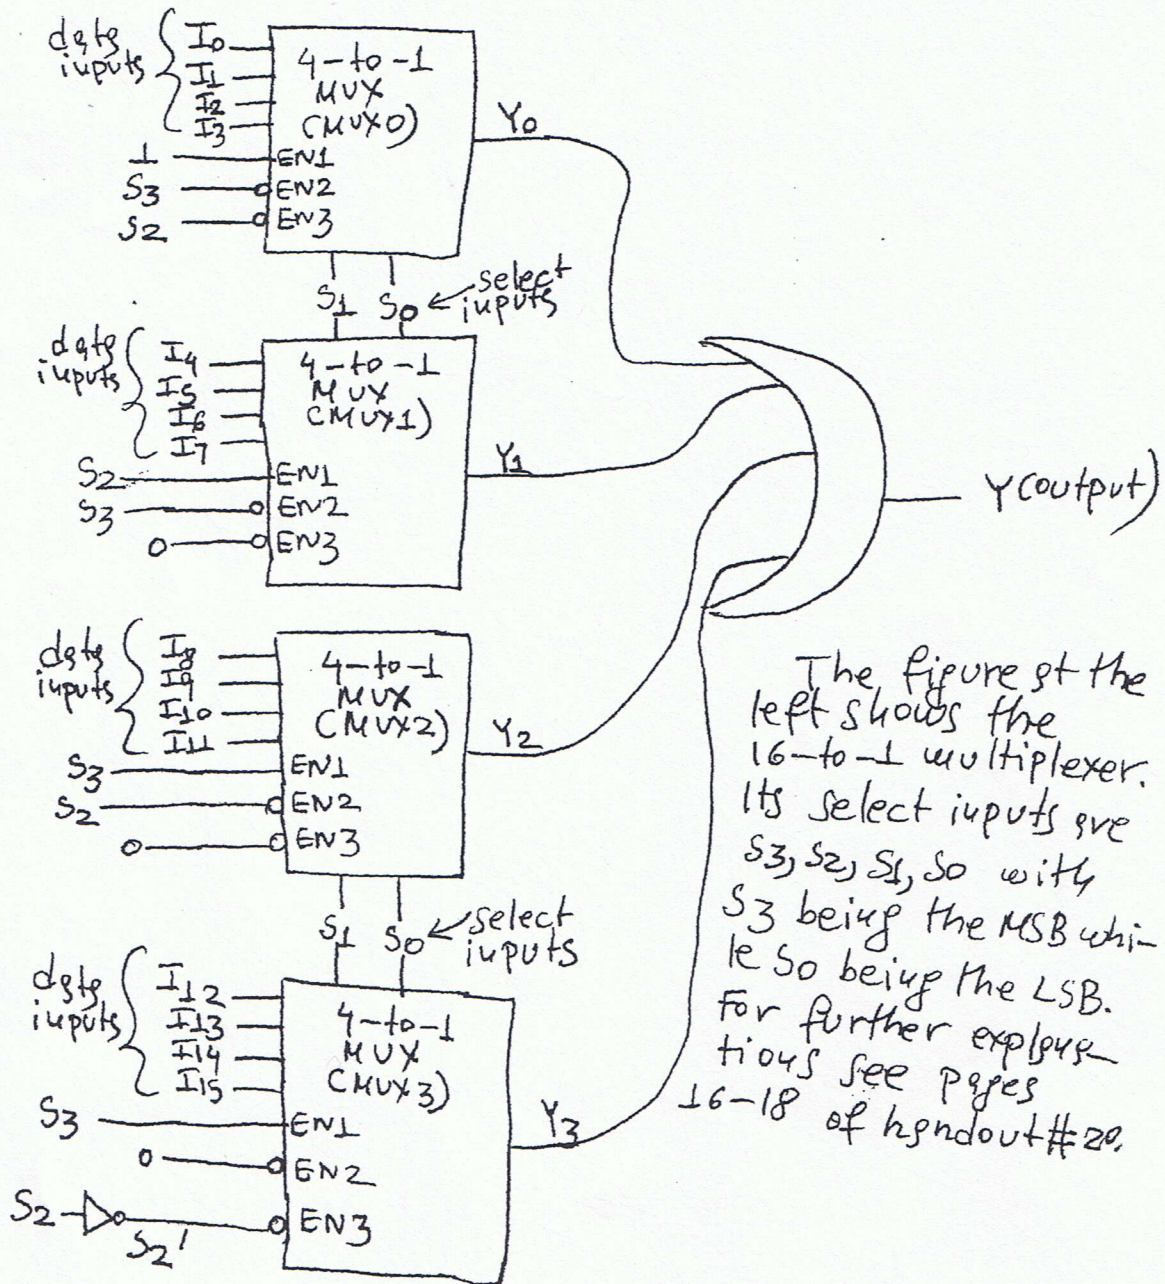 data inputs
I0
I1
I2
I3
1
S3
S2
4-to-1
MUX
(MUX0)
EN1
EN2
EN3
Y0
S1 S0
select inputs
data inputs
I4
I5
I6
I7
S2
S3
0
4-to-1
MUX
(MUX1)
EN1
EN2
EN3
Y1
Y(output)
data inputs
I8
I9
I10
I11
S3
S2
0
4-to-1
MUX
(MUX2)
EN1
EN2
EN3
Y2
S1 S0
select inputs
data inputs
I12
I13
I14
I15
S3
0
S2
S2'
4-to-1
MUX
(MUX3)
EN1
EN2
EN3
Y3
The figure at the
left shows the
16-to-1 multiplexer.
Its select inputs are
S3, S2, S1, S0 with
S3 being the MSB whi-
le S0 being the LSB.
For further explana-
tions see pages
16-18 of handout #20.